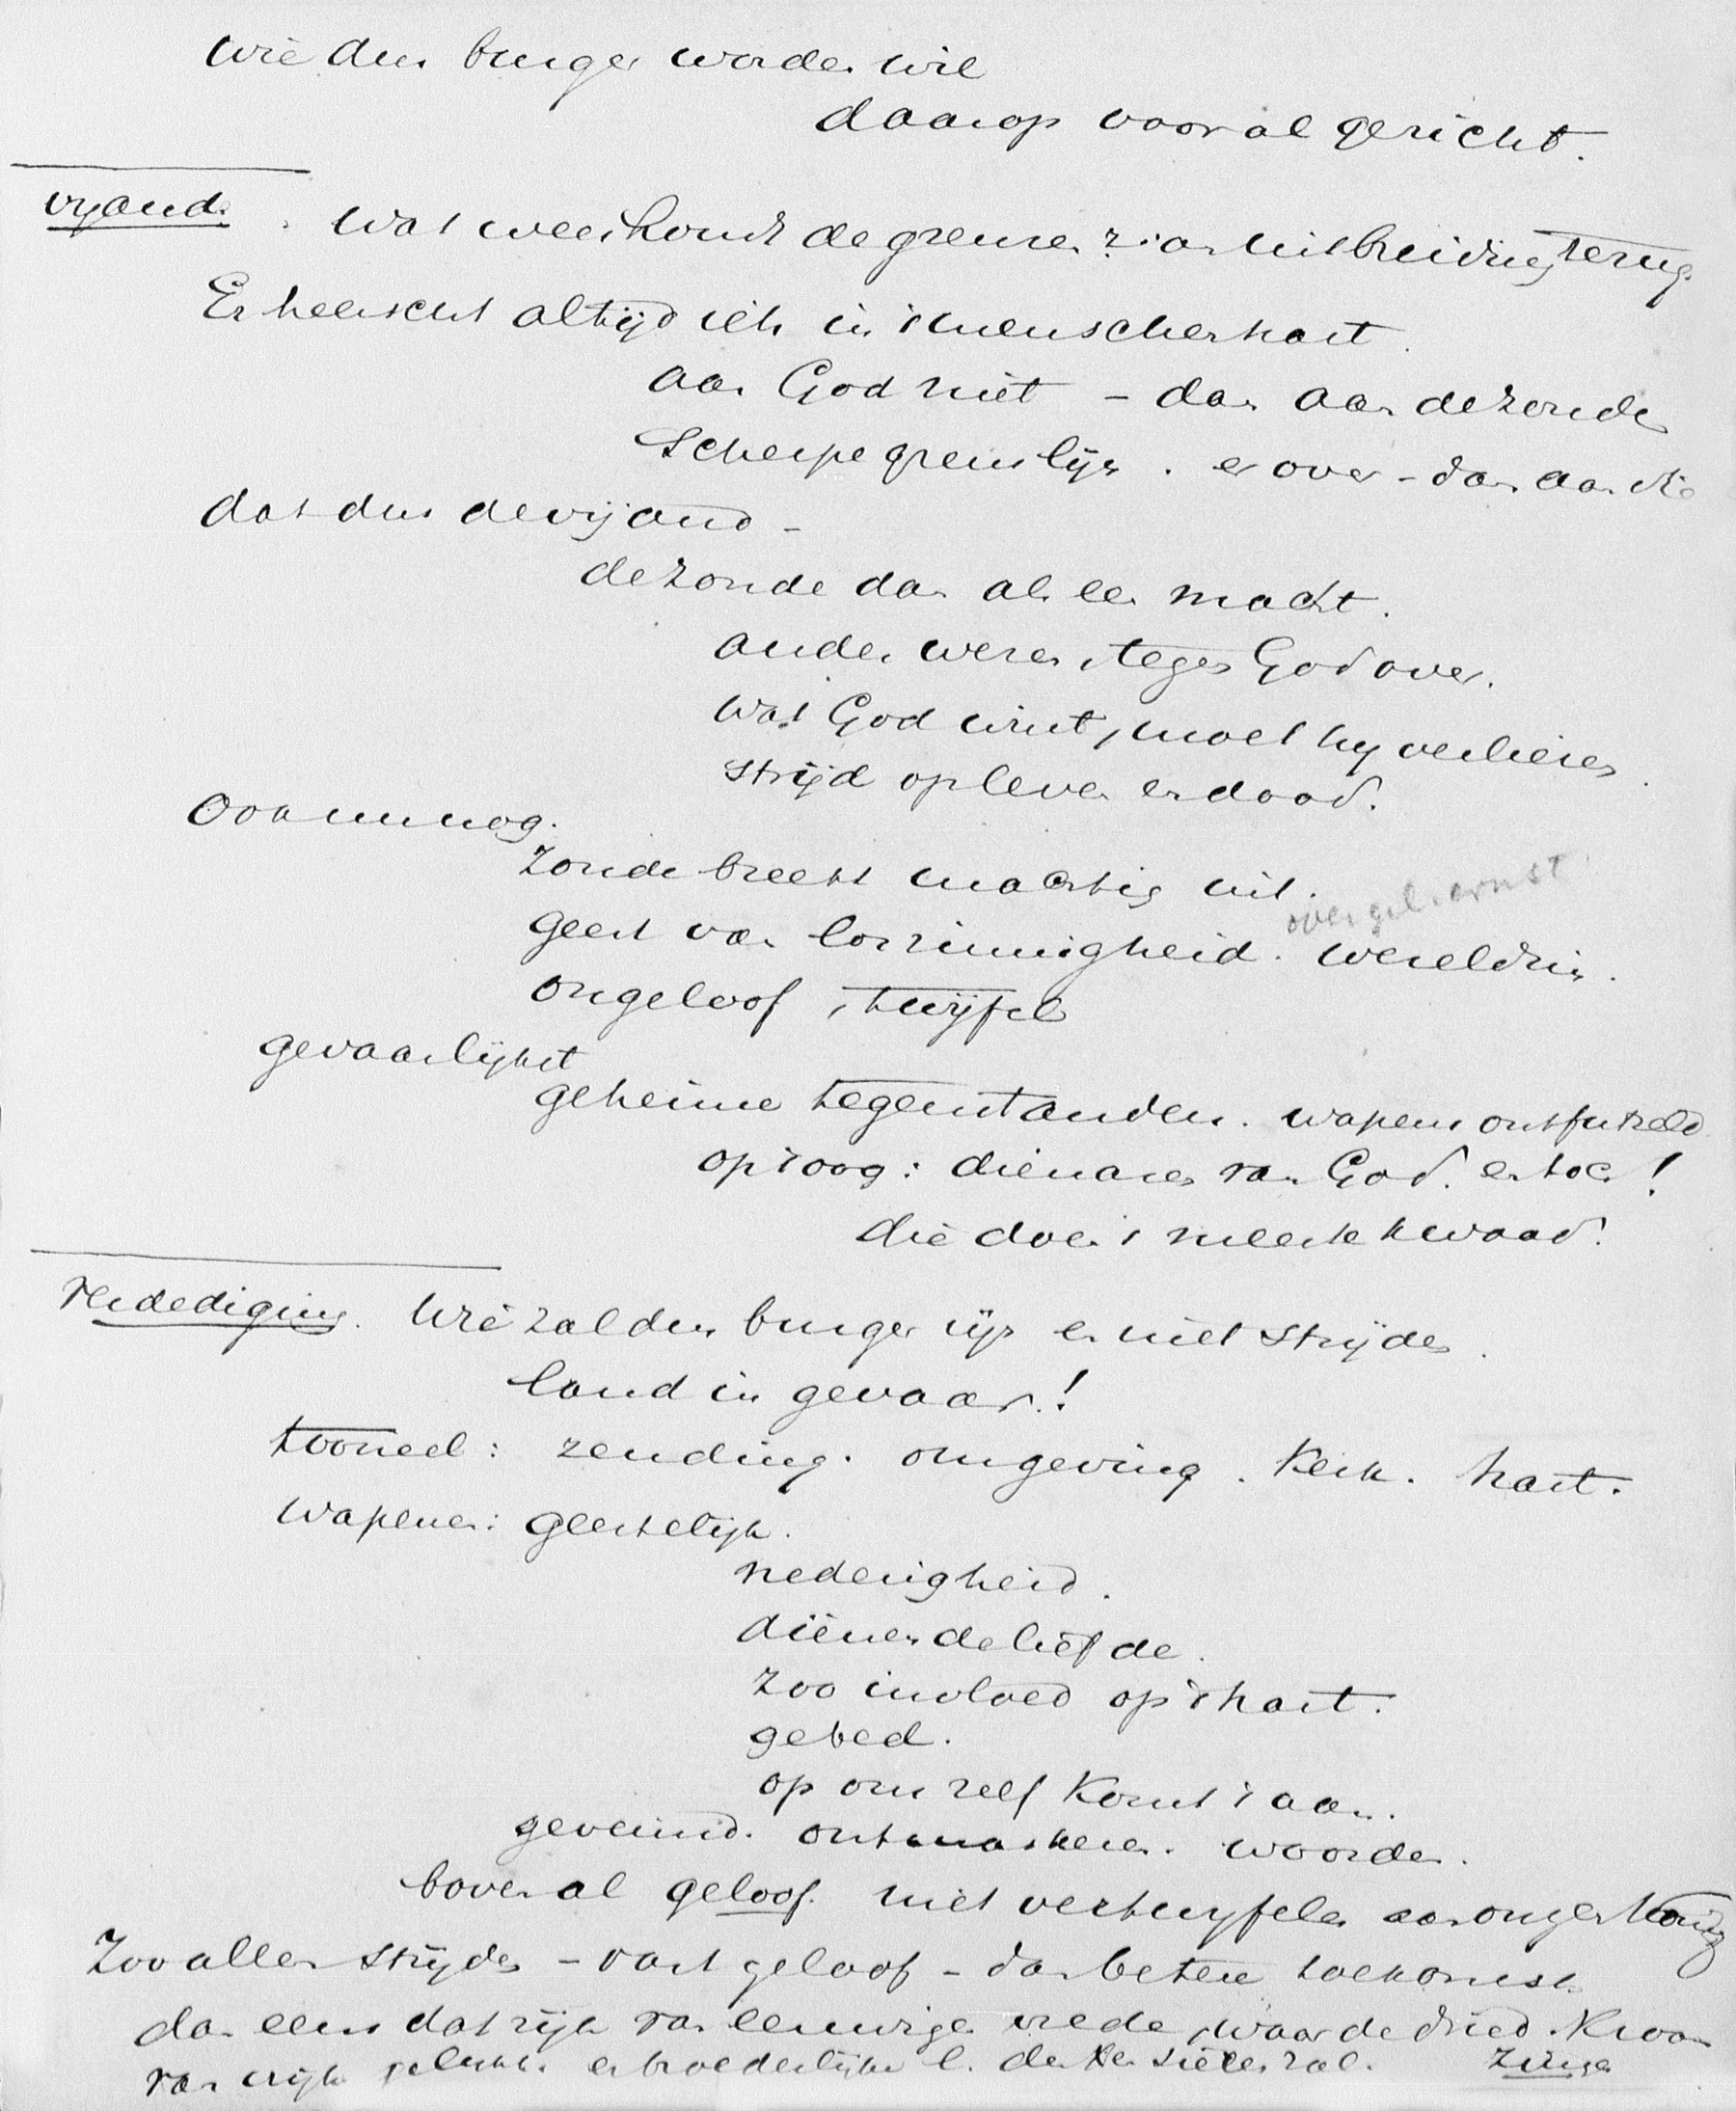 Wie dus burger worden wil
daarop vooral gericht.
vijand. Wat weerhoudt de grenzen z: aan uitbreiding terug
Er heerscht altijd iets in 't menschenhart.
aan God niet – dan aan de zonde
Scherpe grenslijn. er over – dan aan die
dat dus de vijand –
de zonde dan als een macht.
ander wezen tegen God over.
wat God wint, moet hy verliezen
strijd op leven en dood.
Ook nu nog.
Zonde breekt machtig uit.
geest van loszinnigheid. wereldzin.
ongeloof, twijfel
gevaarlijkst
geheime tegenstanders. wapens ontfutseld
op 't oog: dienaren van God. en toch!
die doen 't meeste kwaad.
verdediging. Wie zal dus burger zijn en niet strijden.
land in gevaar!
tooneel: zending. omgeving. Kerk. hart.
Wapenen: geestelijk.
nederigheid.
dienende liefde.
zoo invloed op 't hart.
gebed.
op ons zelf komt 't aan.
geveinsd. ontmaskeren. woorden.
boven al geloof. niet vertwyfelen aan onzen Koning
Zoo allen strijden – vast geloof – dan betere toekomst
dan eens dat rijk van eeuwige vrede, waar de
van vrijh. gelykh. en broederlijke l. der sieren zal. Zingen